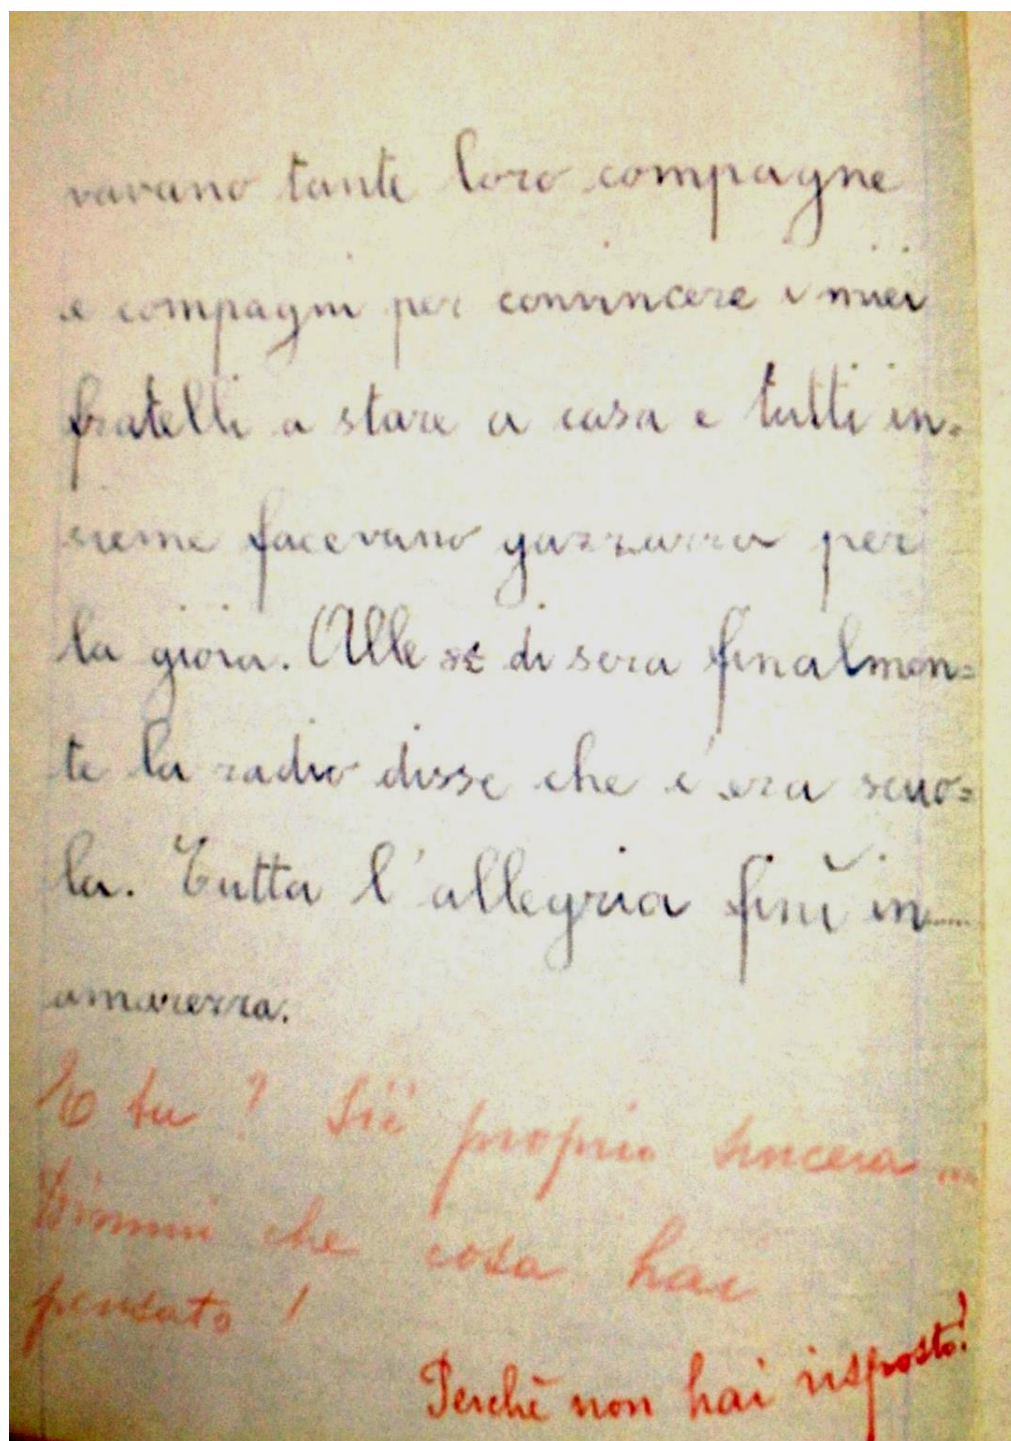 vavano tante loro compagne
e compagni per convincere i miei
fratelli a stare a casa e tutti in-
sieme facevano gazzarra per
la gioia. Alle di sera finalmen=
te la radio disse che c'era scuo=
la. Tutta l'allegria finì in
amarezza.
E tu? Sii proprio sincera ...
Dimmi che cosa hai
pensato!
Perchè non hai risposto?